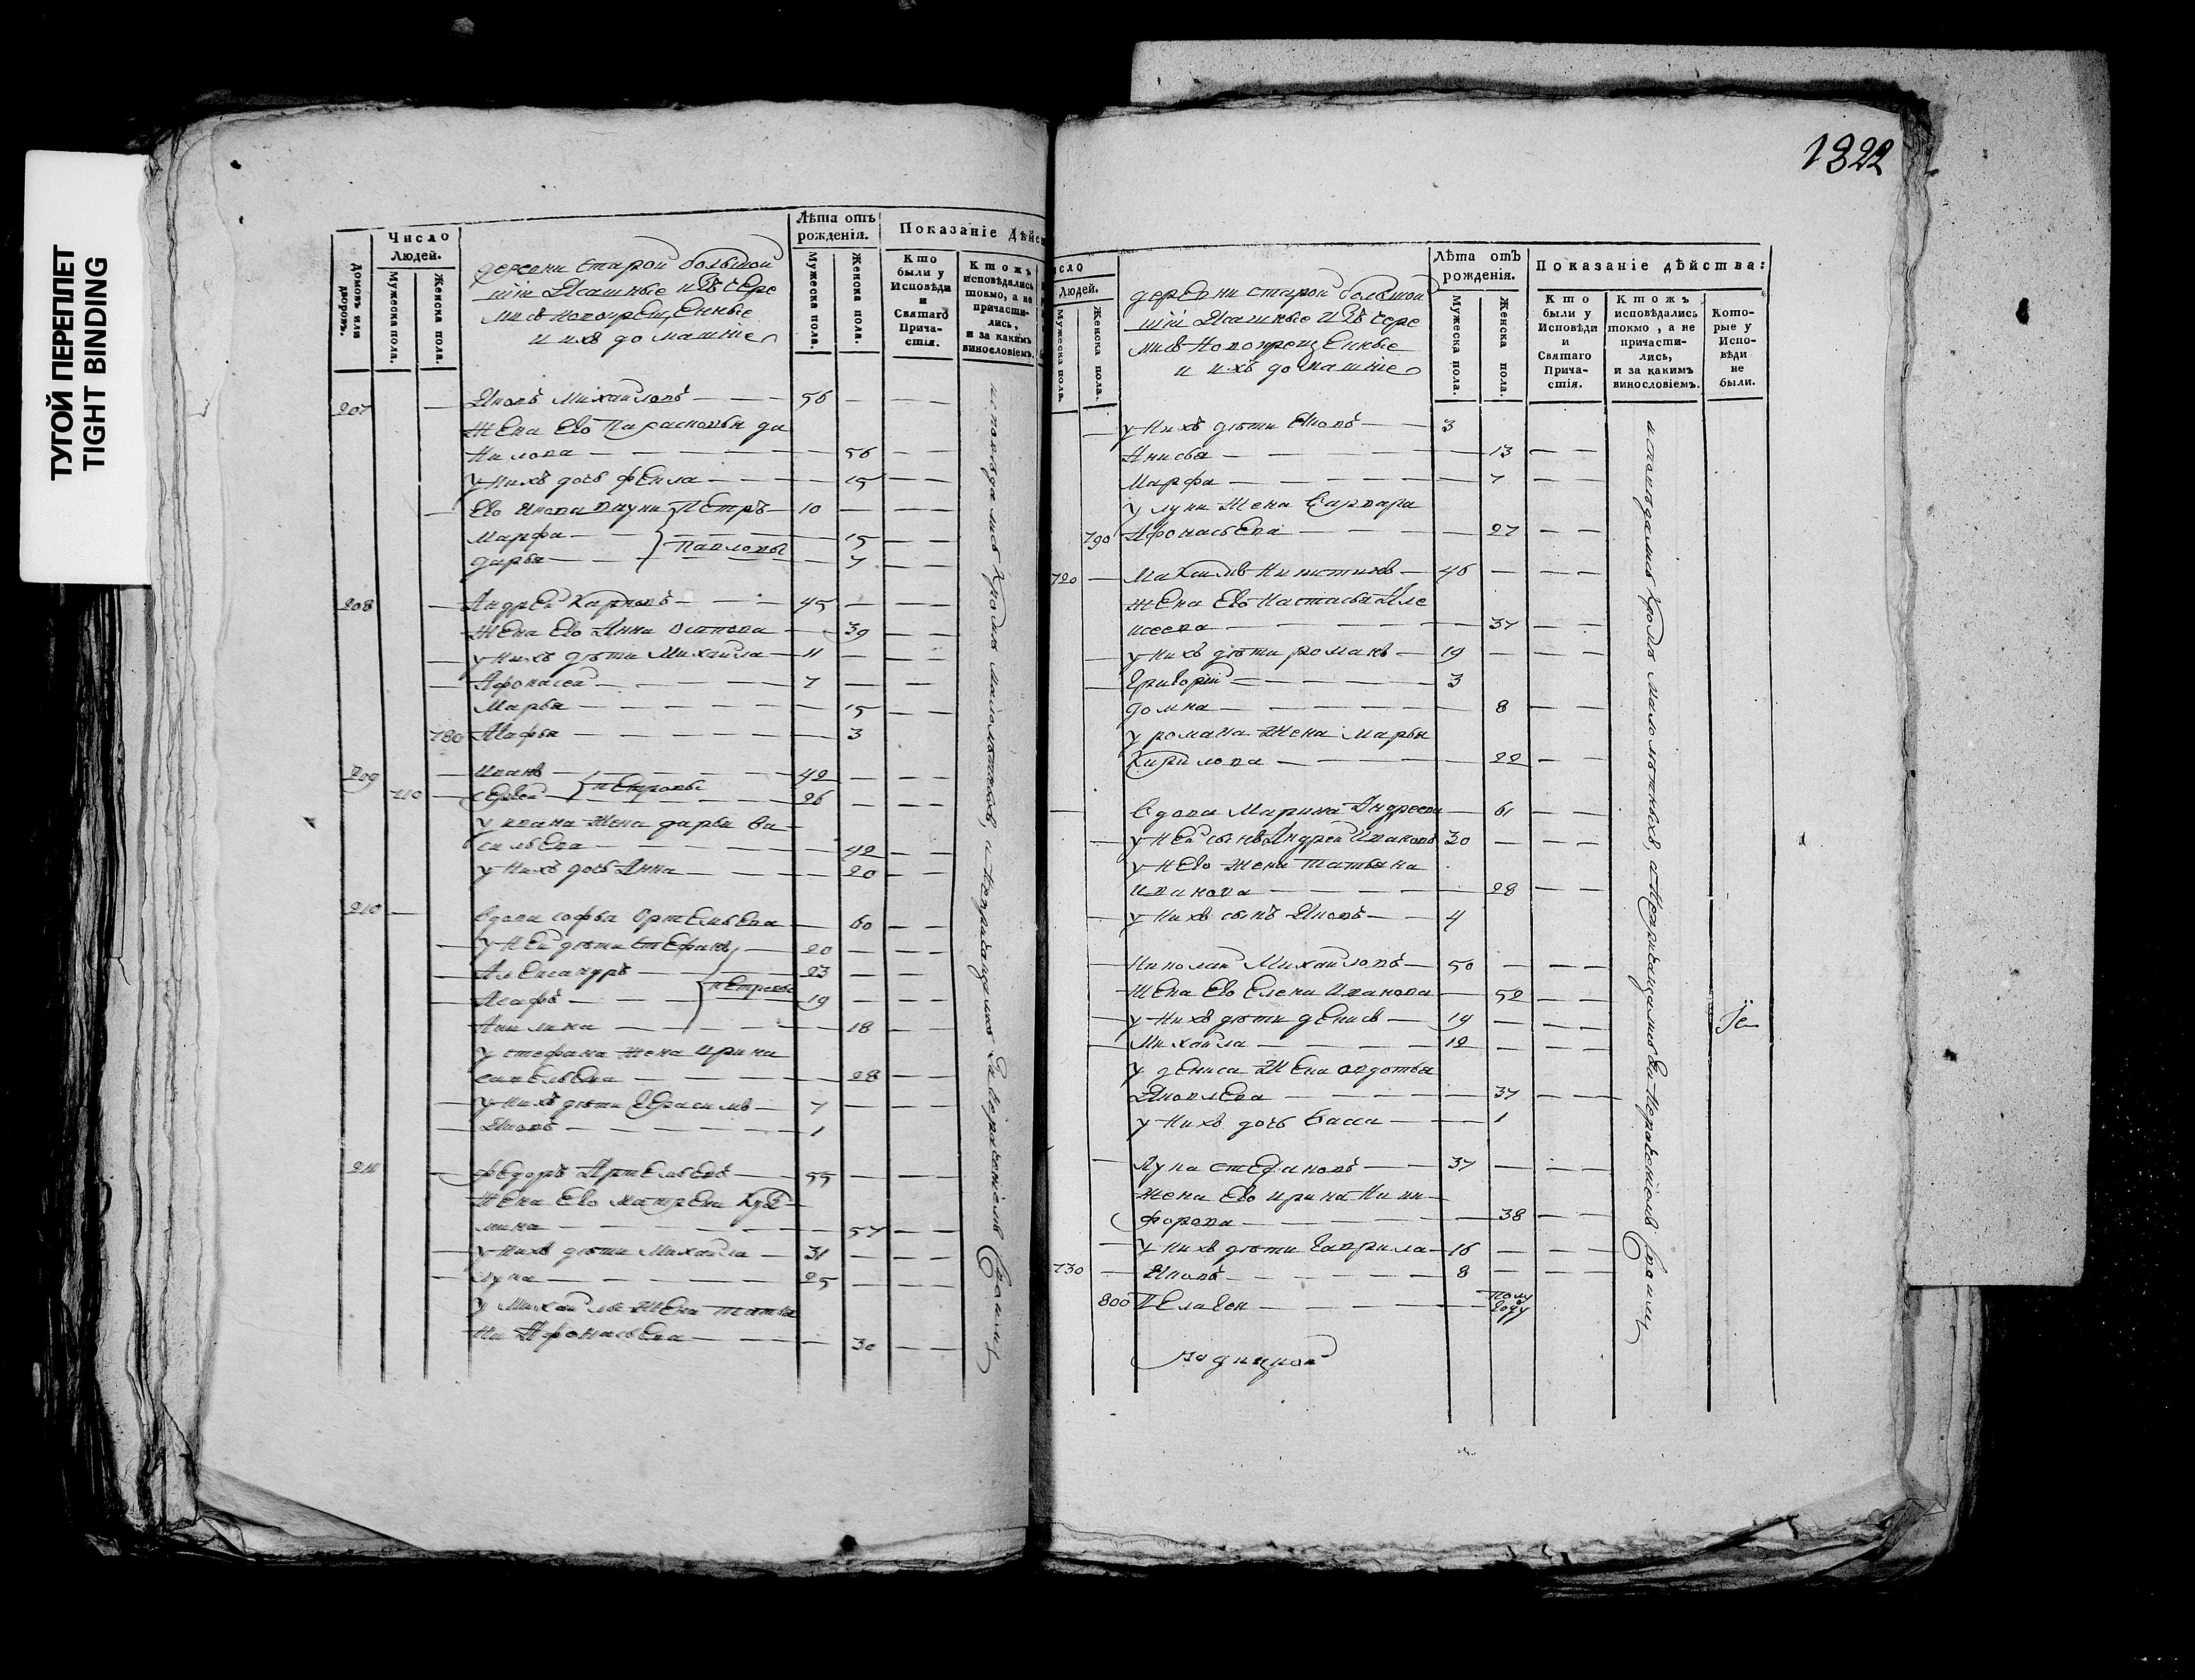 ТУГОЙ ПЕРЕПЛЕТ
TIGHT BINDING
1822
Домовъ или дворовъ.
Число
Людей.
Мужеска пола.
Женска пола.
деревни старой большой
ясашные изъ чере
мисъ новокрещенные
и ихъ домашние
Лѣта отъ
рожденія.
Мужеска пола.
Женска пола.
Показаніе Дѣйс
Кто
были у
Исповѣди
и
Святаго
Прича-
стія.
Ктожъ
исповѣдались
токмо, а не
причасти-
лись,
и за какимъ
винословіемъ.
207 — Яковъ Михаиловъ — 56
Жена Ево Парасковья да
нилова — 56
у нихъ дочь фекла — 15
Ево Якова внуки Петръ — 10
Марфа — 15
Павловы
дарья — 7
208 — Андрей Карповъ — 45
Жена Ево Анна осипова — 39
у нихъ дѣти Михаила — 11
Афонасей — 7
Марья — 15
780 — 3
209 — Иванъ — 42
Петровы
710 — Сергей — 26
у ивана Жена дарья ва
сильева — 42
у нихъ дочь Анна — 20
210 — вдова софья Артемьева — 60
у ней дѣти Стефанъ — 20
Александръ — 23
Петровы
Асафъ — 19
Акилина — 18
у стефана жена ирина
савельева — 28
у нихъ дѣти Герасимъ — 7
Яковъ — 1
211 — федоръ Артемьевъ — 55
Жена Ево матрена Куз
мина — 57
у нихъ дѣти Михаила — 31
лука — 25
у Михаилы Жена татья
на Афонасьева — 30
исповѣдались Кромѣ малолѣтныхъ, а непричащались за нераченіемъ
число
Людей.
Мужеска пола.
Женска пола.
деревни старой большой
ясашные изъ чере
мисъ Новокрещенные
и ихъ домашние
Лѣта отъ
рожденія.
Мужеска пола.
Женска пола.
Показаніе дѣйства:
Кто
были у
Исповѣди
и
Святаго
Прича-
стія.
Ктожъ
исповѣдались
токмо, а не
причасти-
лись,
и за какимъ
винословіемъ.
Кото-
рые у
Испо-
вѣди
не
были.
у нихъ дѣти Яковъ — 3
Анисья — 13
Марфа — 7
у луки Жена варвара
790 Афонасьева — 27
720 — Максимъ Никитинъ — 46
Жена Ево Настасья Але
ксеева — 37
у нихъ дѣти романъ — 19
Григорій — 3
домна — 8
у романа Жена Марья
Кирилова — 22
вдова Марина Андреева — 61
у ней сынъ Андрей Ивановъ 30
у Нево Жена татьяна
иванова — 28
у нихъ сынъ Яковъ — 4
Николай Михаиловъ — 50
Жена Ево Елена Иванова — 52
у нихъ дѣти денисъ — 19
Михаила — 12
у дениса Жена авдотья
Яковлева — 37
у нихъ дочь васса — 1
Лука стефановъ — 37
Жена Ево ирина Ники
форова — 38
у нихъ дѣти Гаврила — 16
730 — Яковъ — 8
800 Пелагея — полу году
исповѣдались Кромѣ малолѣтныхъ, а непричащались за нераченіемъ